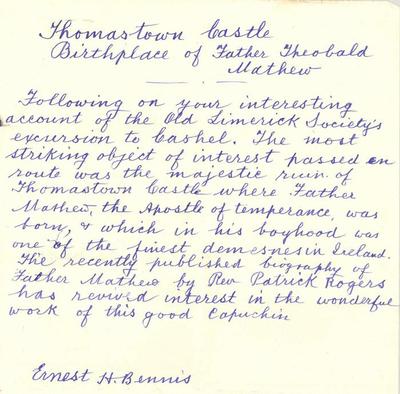 Thomastown Castle
Birthplace of Father Theobald
Mathew
Following on your interesting
account of the Old Limerick Society's
excursion to Cashel. The most
striking object of interest passed en
route was the majestic ruin of
Thomastown Castle where Father
Mathew, the Apostle of temperance, was
born, & which in his boyhood was
one of the finest demesnes in Ireland.
The recently published biography of
Father Mathew by Rev Patrick Rogers
has revived interest in the wonderful
work of this good Capuchin
Ernest H. Bennis